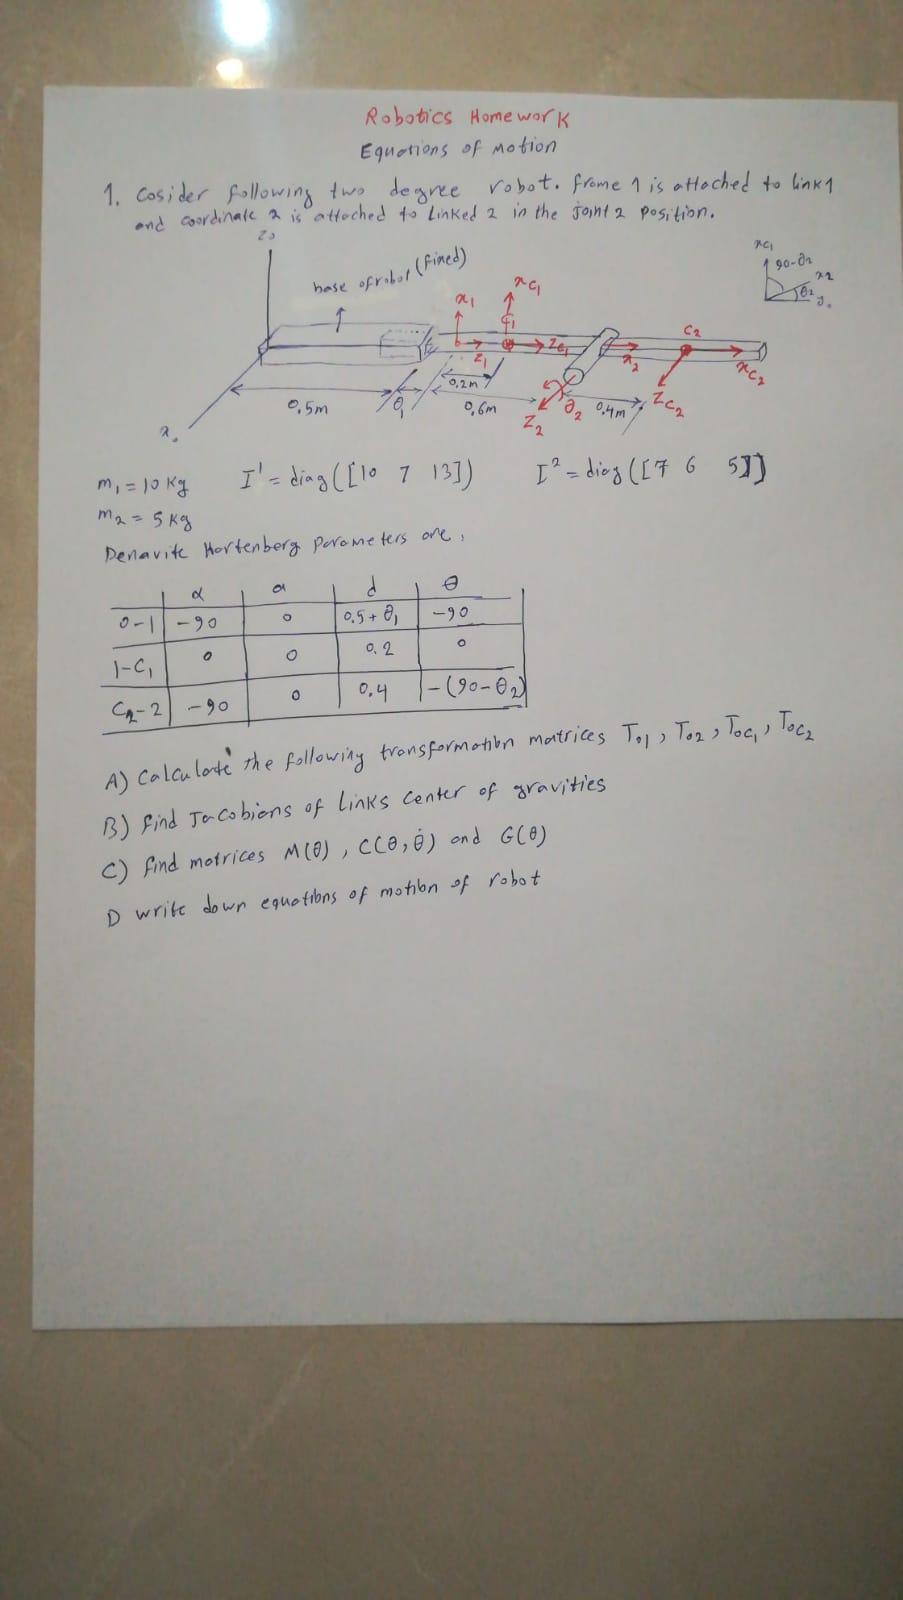 Robotics Homework
Equations of Motion
1. Cosider following two degree robot. frame 1 is attached to link 1
and coordinate 2 is attached to Linked 2 in the joint 2 position.
z₀
base of robot (fixed)
x₁
xc₁
c₁
z₁
zc₁
0.2m
0.5m
θ₁
0.6m
x₀
z₂
θ₂
0.4m
x₂
c₂
zc₂
xc₂
xc₁
90-θ₂
x₂
θ₂
y₀
m₁ = 10 Kg I¹ = diag([10 7 13]) I² = diag([7 6 5])
m₂ = 5 Kg
Denavite Hartenberg parameters are,
α a d θ
0-1 -90 0 0.5+θ₁ -90
1-C₁ 0 0 0.2 0
C₂-2 -90 0 0.4 -(90-θ₂)
A) Calculate the following transformation matrices T₀₁, T₀₂, T₀c₁, T₀c₂
B) find Jacobians of links center of gravities
C) find matrices M(θ), C(θ,θ̇) and G(θ)
D write down equations of motion of robot